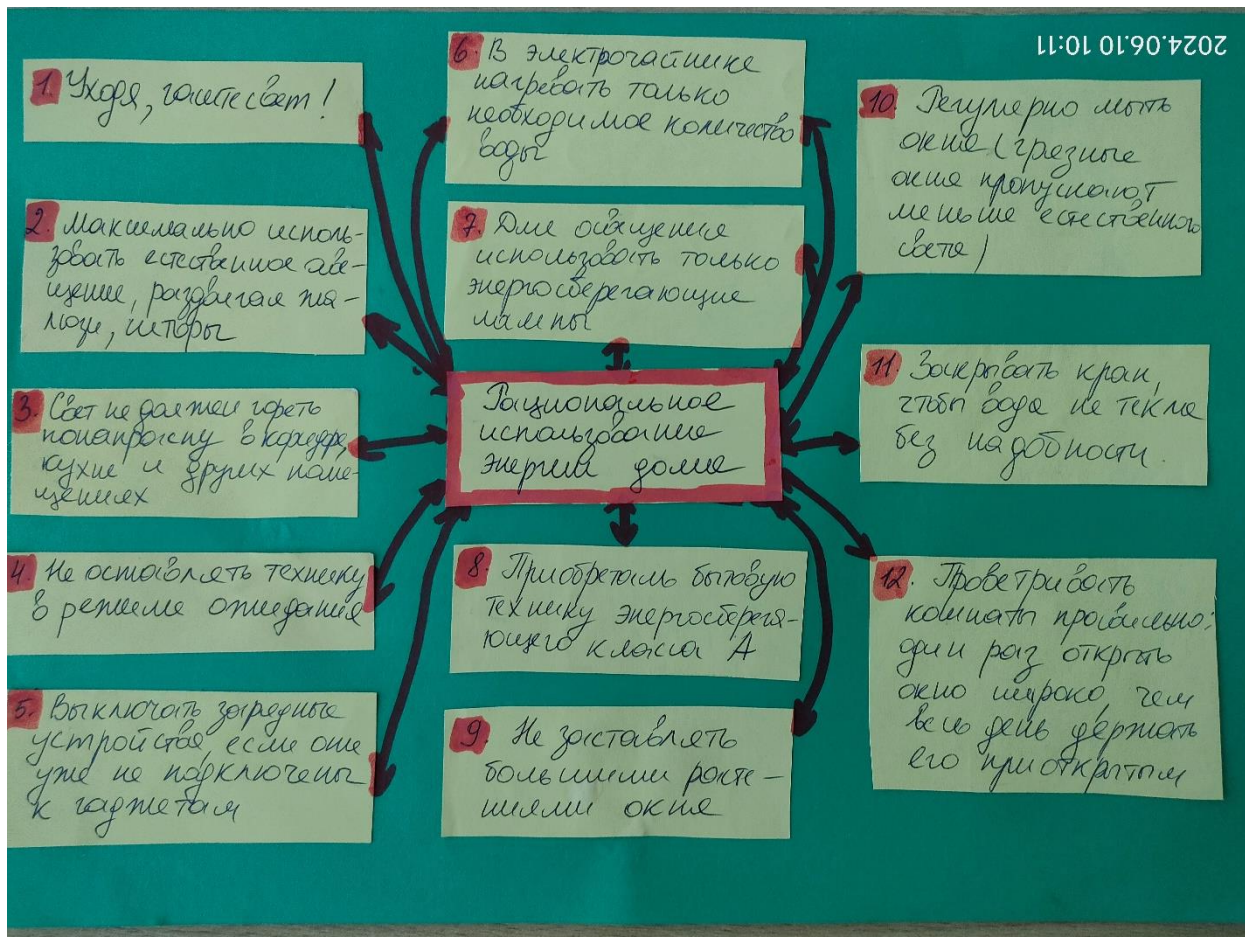 2024.06.10 10:11
1. Уходя, гасите свет!
2. Максимально исполь-
зовать естественное осве-
щение, раздвигая жа-
люзи, шторы
3. Свет не должен гореть
понапрасну в коридоре,
кухне и других поме-
щениях
4. Не оставлять технику
в режиме ожидания
5. Выключать зарядные
устройства, если они
уже не подключены
к гаджетам
6. В электрочайнике
нагревать только
необходимое количество
воды
7. Для освещения
использовать только
энергосберегающие
лампы
Рациональное
использование
энергии дома
8. Приобретать бытовую
технику энергосберега-
ющего класса А
9. Не заставлять
большими расте-
ниями окна
10. Регулярно мыть
окна (грязные
окна пропускают
меньше естественного
света)
11. Закрывать кран,
чтобы вода не текла
без надобности.
12. Проветривать
комнаты правильно:
один раз открыть
окно широко, чем
весь день держать
его приоткрытым